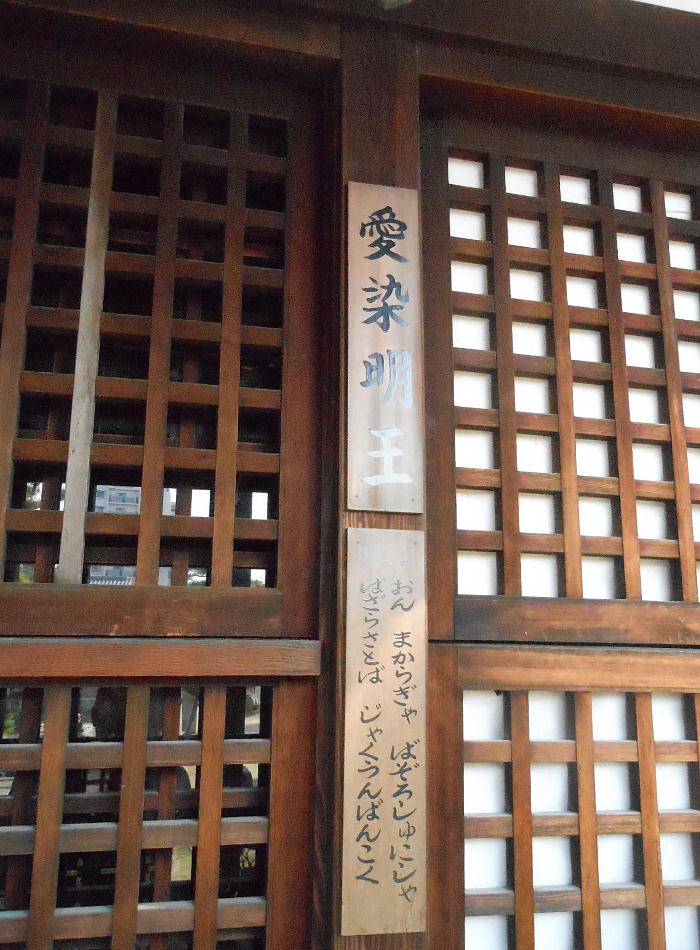 愛染明王
おん まからぎゃ ばぞろしゅにしゃ
ばざらさとば じゃくうんばんこく